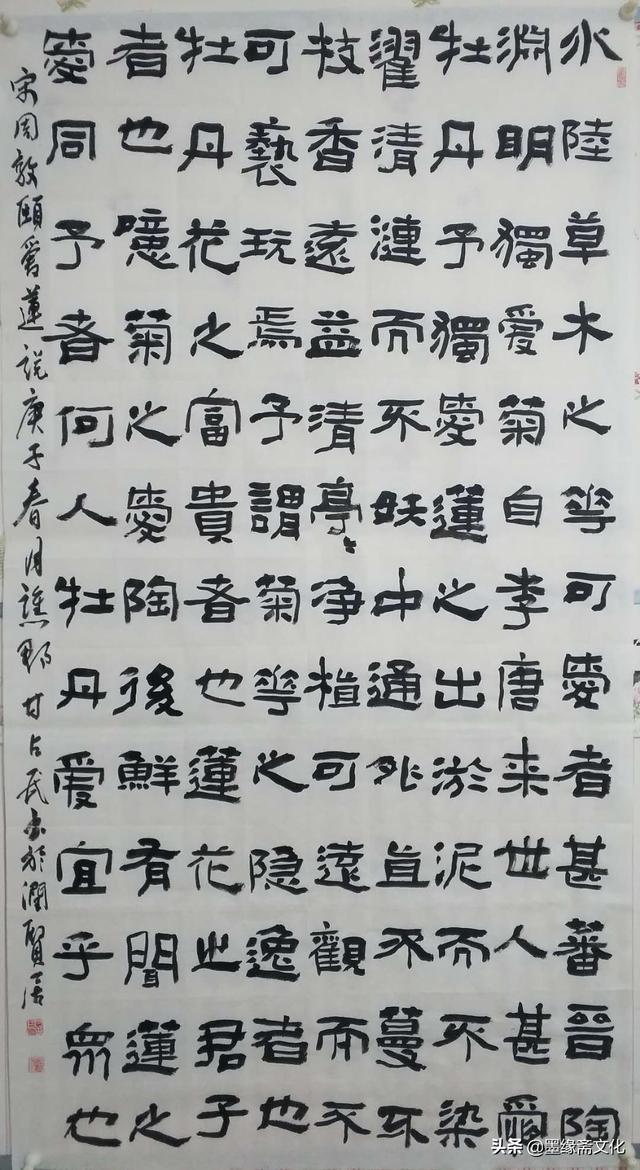 水陸草木之華可愛者甚蕃晉陶
淵明獨爱菊自李唐来世人甚愛
牡丹予獨愛蓮之出淤泥而不染
濯清漣而不妖中通外直不蔓不
枝香遠益清亭々净植可遠觀而不
可褻玩焉予謂菊華之隐逸者也
牡丹花之富貴者也蓮花之君子
者也噫菊之愛陶後鮮有聞蓮之
愛同予者何人牡丹爱宜乎眾也
宋周敦頤爱蓮説庚子春月譙郡甘占民書於潤賢居
头条@墨缘斋文化